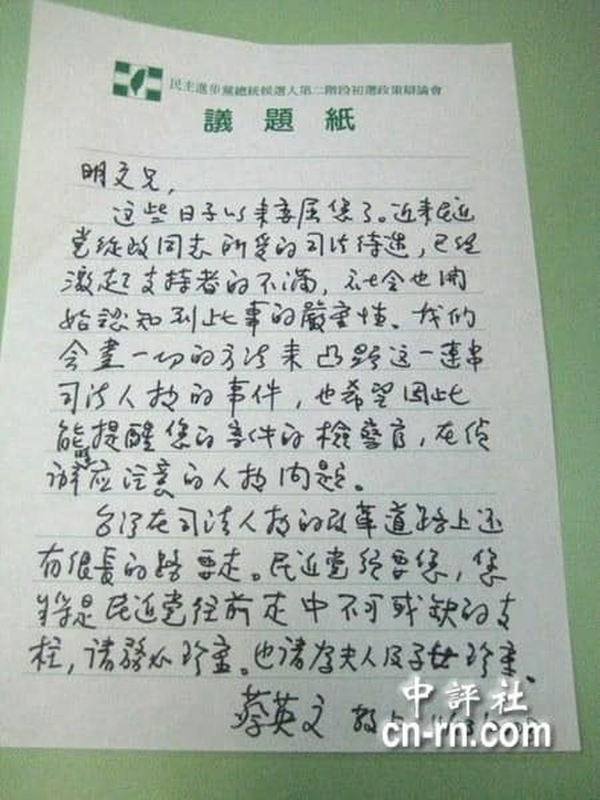 民主進步黨總統候選人第二階段初選政策辯論會
議題紙
明文兄,
這些日子以來委屈您了。近來民進
党從政同志所受的司法待遇,已经
激起支持者的不滿,社会也開
始認知到此事的嚴重性。我们
会盡一切的方法来凸顯这一連串
司法人权的事件,也希望因此
能提醒您的案件的檢察官,在偵
辦應注意的人权问题。
台湾在司法人权的改革道路上还
有很長的路要走。民進党須要您,您
將是民進党往前走中不可或缺的支
柱,請務必珍重。也請尊夫人及子女珍重。
蔡英文 敬上
中評社
cn-rn.com